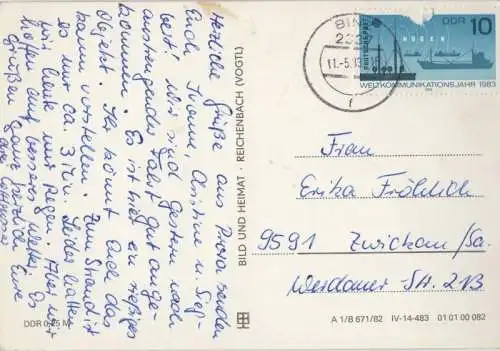 Herzliche Grüße aus Prora senden
Euch Yvonne, Christine u. Sieg-
bert! Wir sind gestern nach
anstrengender Fahrt gut ange-
kommen. Es ist hier ein riesiges
Objekt. Ihr könnt Euch das
kann vorstellen. Zum Strand ist
es nur ca. 3 Min. Leider hatten
wir heute nur Regen. Aber wir
hoffen auf besseres Wetter. Es
grüßen ganz herzlich Eure
DDR 0,25 M
BILD UND HEIMAT · REICHENBACH (VOGTL)
BIN
11.-5.83
f
DEUTSCHE POST
RÜGEN
DDR 10
WELTKOMMUNIKATIONSJAHR 1983
Frau
Erika Fröhlich
9591 Zwickau/Sa.
Werdauer Str. 21B
A 1/B 671/82 IV-14-483 01 01 00 082